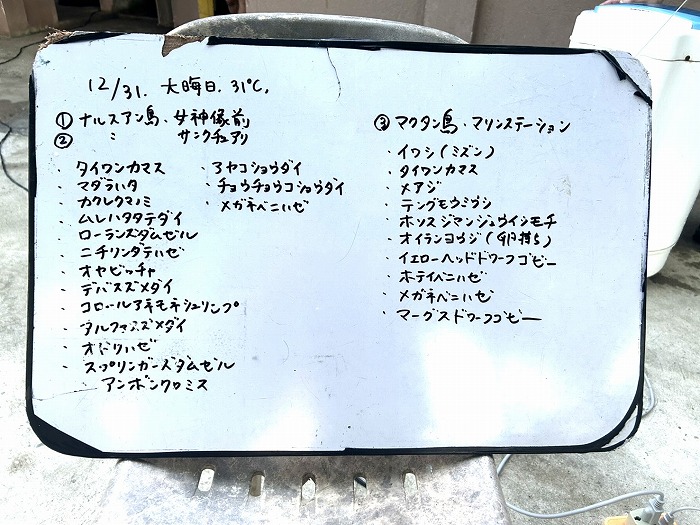 12/31. 大晦日. 31℃.
① ナルスアン島・女神像前
② 〃 サンクチュアリ
・タイワンカマス
・マダラハタ
・カクレクマノミ
・ムレハタタテダイ
・ローランズダムゼル
・ニチリンダテハゼ
・オヤビッチャ
・デバスズメダイ
・コロールアネモネシュリンプ
・アルファスズメダイ
・オドリハゼ
・スプリンガーズダムゼル
・アンボンクロミス
・アヤコショウダイ
・チョウチョウコショウダイ
・メガネベニハゼ
③ マクタン島・マリンステーション
・イワシ(ミズン)
・タイワンカマス
・メアジ
・テングモウミウシ
・ホソスジマンジュウイシモチ
・オイランヨウジ(卵持ち)
・イエローヘッドドワーフゴビー
・ホテイベニハゼ
・メガネベニハゼ
・マーグスドワーフゴビー